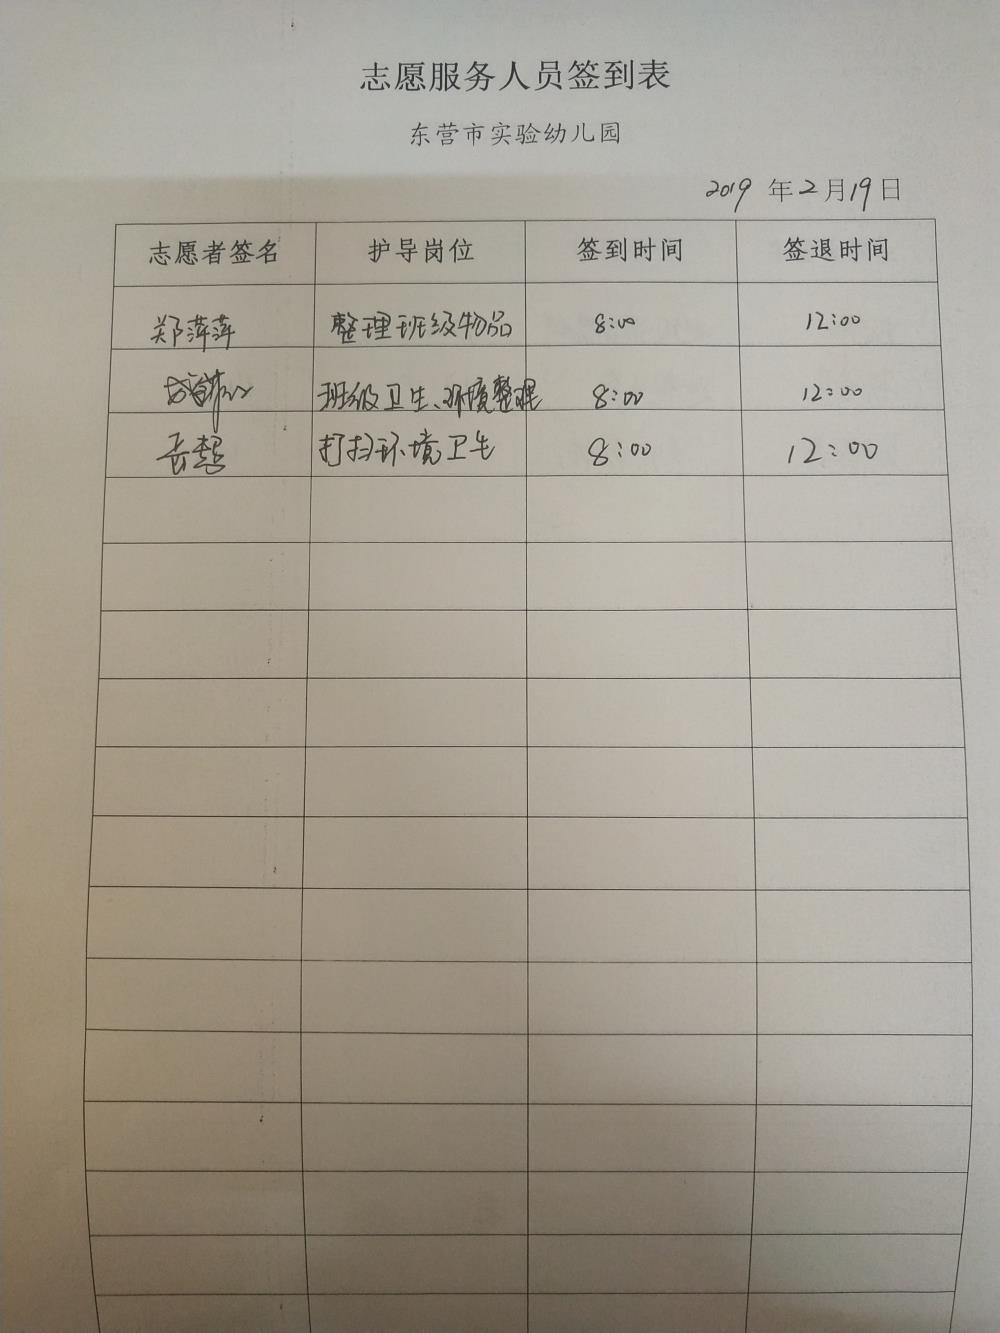 志愿服务人员签到表
东营市实验幼儿园
2019 年 2 月 19 日
志愿者签名 护导岗位 签到时间 签退时间
郑萍萍 整理班级物品 8:00 12:00
班级卫生、环境整理 8:00 12:00
岳超 打扫环境卫生 8:00 12:00